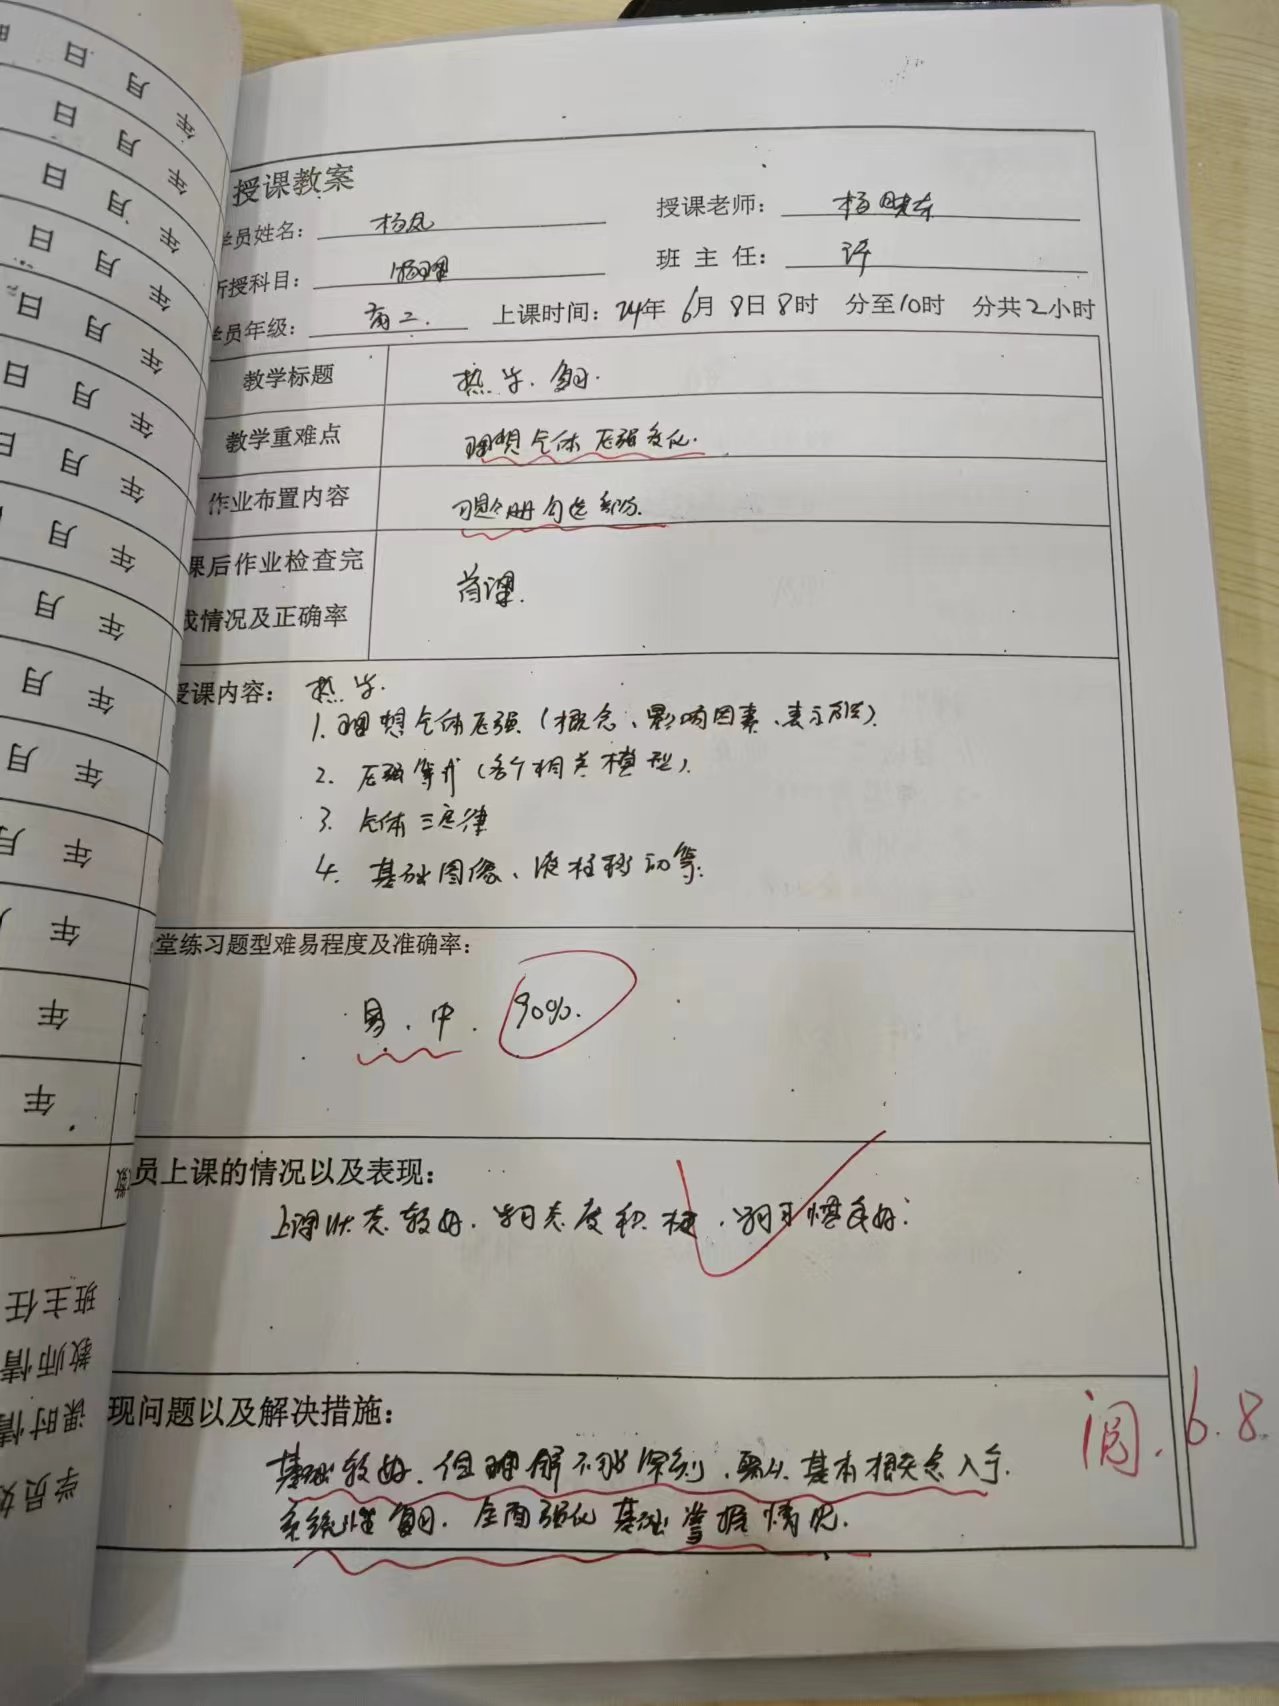 授课教案
学员姓名： 杨凤 授课老师： 杨晓东
所授科目： 物理 班 主 任： 许
学员年级： 高二. 上课时间：24年 6月 8日 8时 分至10时 分共2小时
教学标题 热学.复习.
教学重难点 理想气体压强变化.
作业布置内容 习题册勾选部分.
课后作业检查完
成情况及正确率 首课.
授课内容： 热学.
1. 理想气体压强（概念、影响因素、表示方法）.
2. 压强等式（各个相关模型）.
3. 气体三定律
4. 基础图像、液柱移动等.
堂练习题型难易程度及准确率：
易.中. 90%.
员上课的情况以及表现：
上课状态较好.学习态度积极.学习习惯良好.
现问题以及解决措施：
基础较好.但理解不够深刻.需从基本概念入手.
系统性复习.全面强化基础掌握情况.
阅.6.8
年 月 日
班主任
教师情
课时情
学员